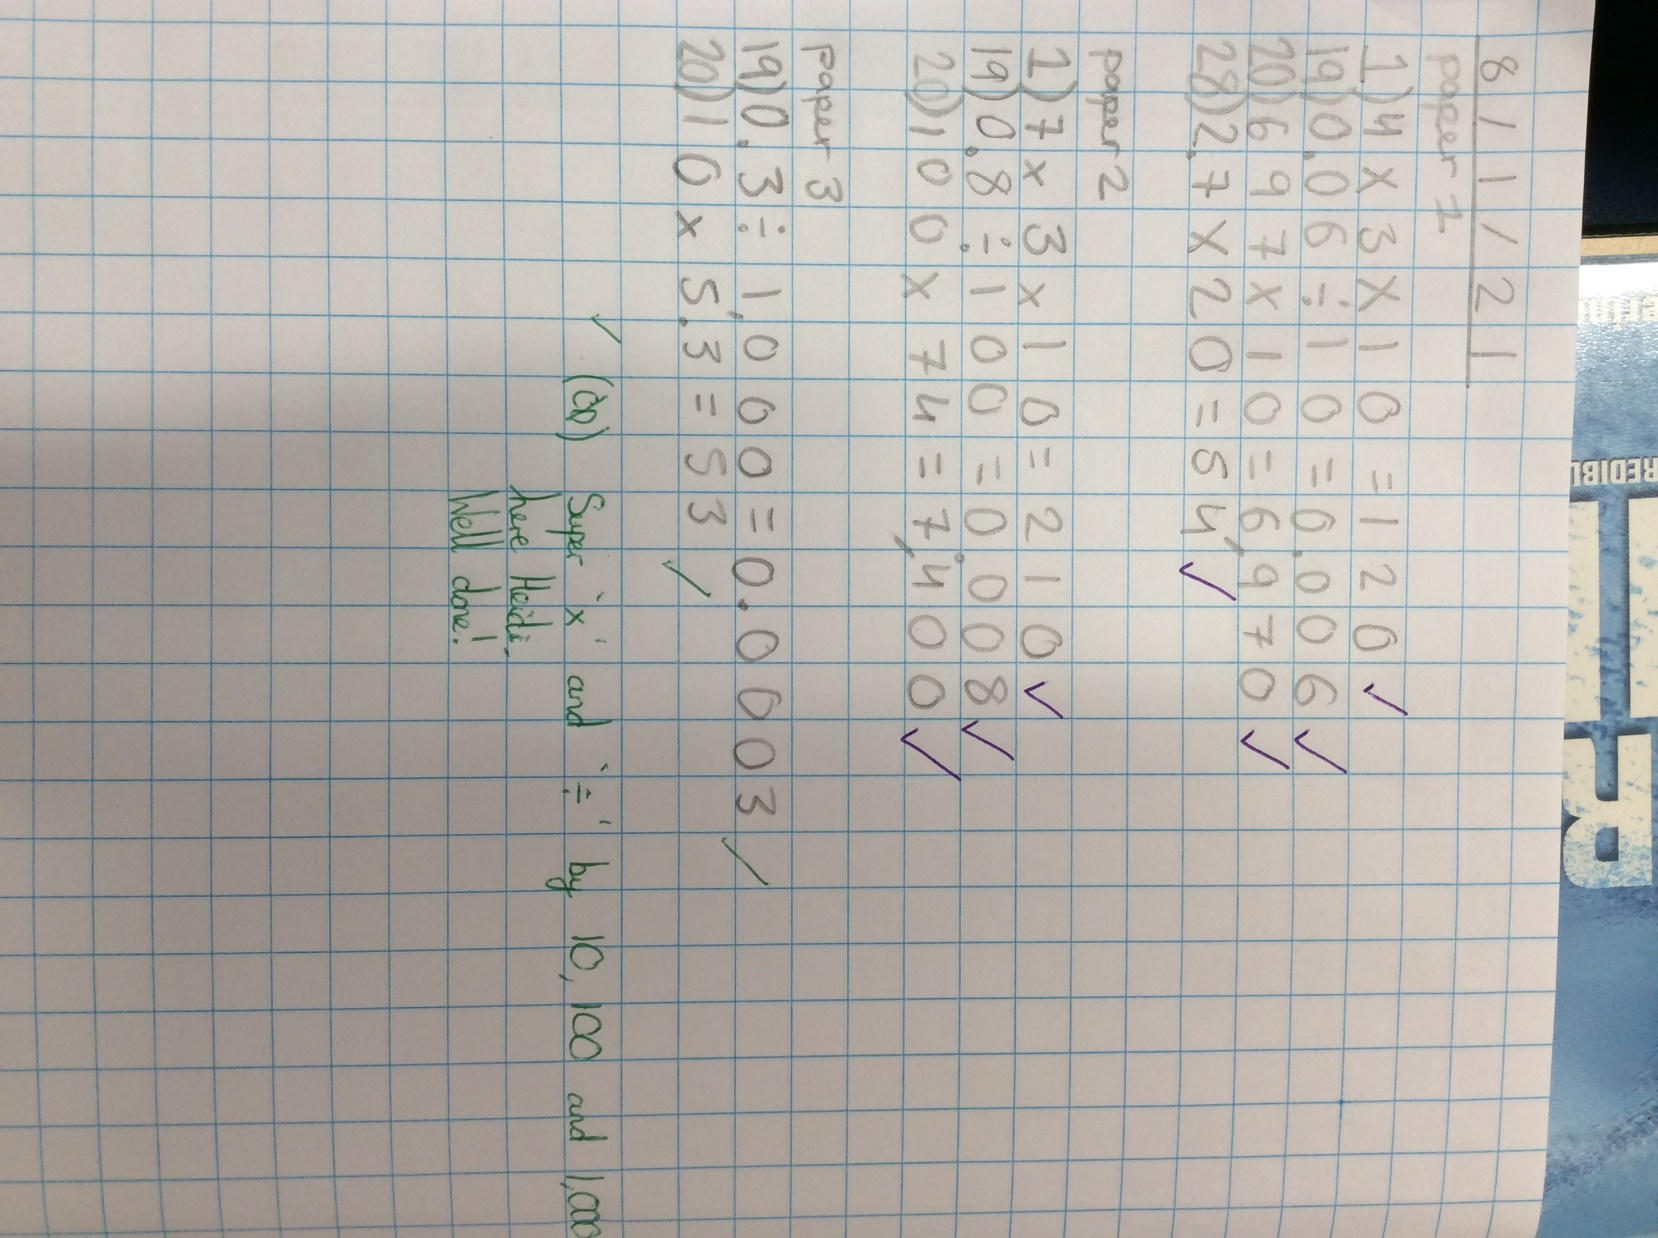 8/11/21
paper 1
1) 4 x 3 x 10 = 120
19) 0.06 ÷ 10 = 0.006
20) 697 x 10 = 6,970
28) 2.7 x 20 = 54
paper 2
1) 7 x 3 x 10 = 210
19) 0.8 ÷ 100 = 0.008
20) 100 x 74 = 7,400
paper 3
19) 0.3 ÷ 1,000 = 0.0003
20) 10 x 5.3 = 53
Super 'x' and '÷' by 10, 100 and 1,000
here Heidi.
Well done!
REDIBL